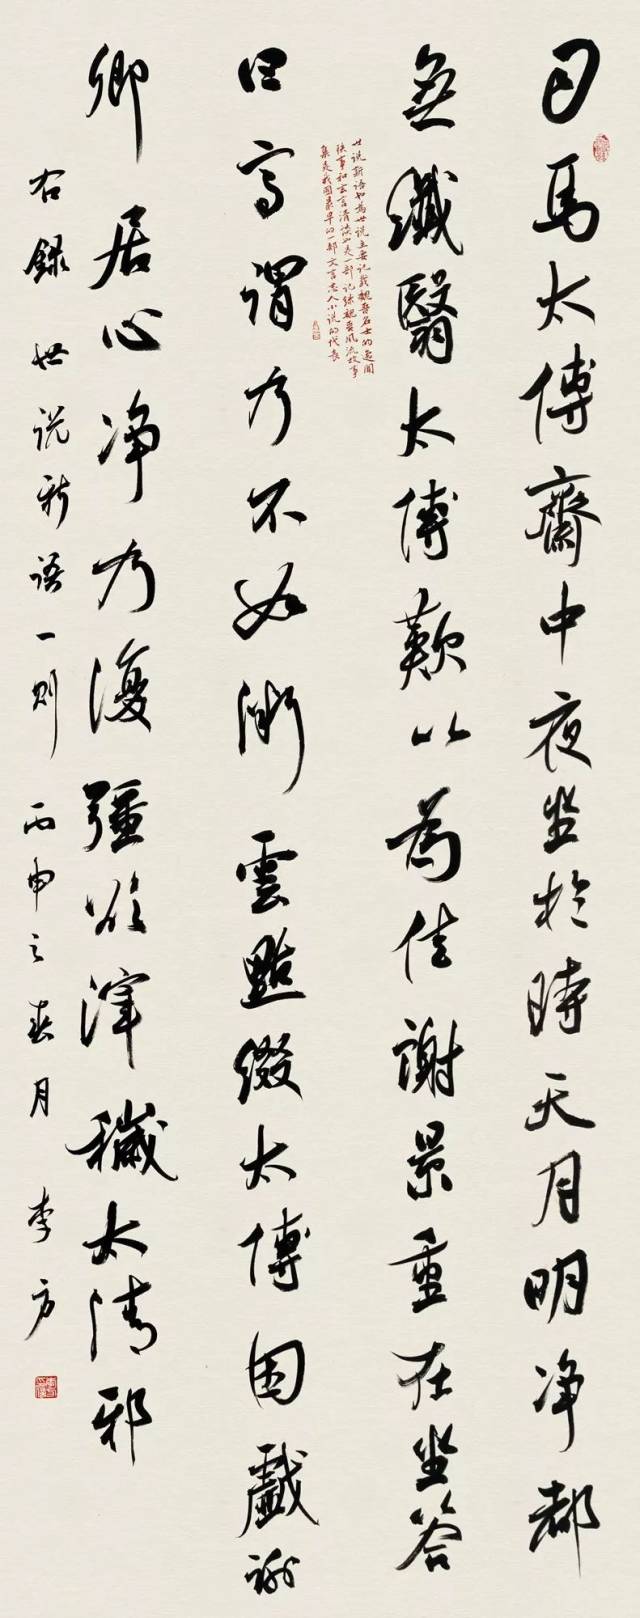 司馬太傅齋中夜坐於時天月明净都
無纖翳太傅歎以為佳謝景重在坐答
世说新语如為世说主要记载魏晋名士的逸闻
轶事和玄言清谈也是一部记録魏晋风流故事
集是我國最早的一部文言志人小说的代表
曰意謂乃不如微雲點綴太傅因戲謝
卿居心净乃復彊欲滓穢太清邪
右錄世说新语一則 丙申之春月 李方